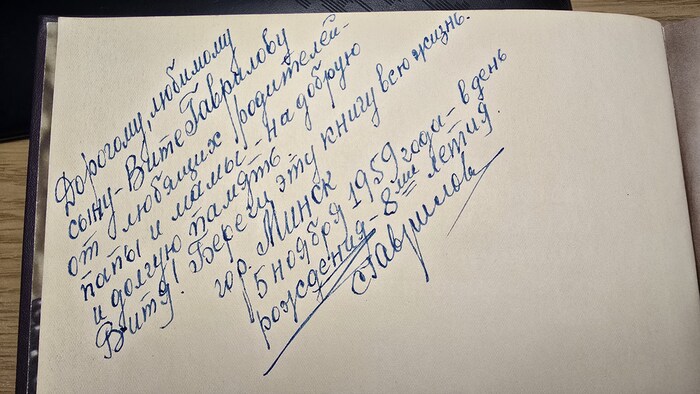 Дорогому, любимому
сыну - Вите Гаврилову
от любящих родителей -
папы и мамы - на добрую
и долгую память
Витя! Береги эту книгу всю жизнь.
гор. Минск
5 ноября 1959 года - в день
рождения - 8ми летия.
Гаврилов